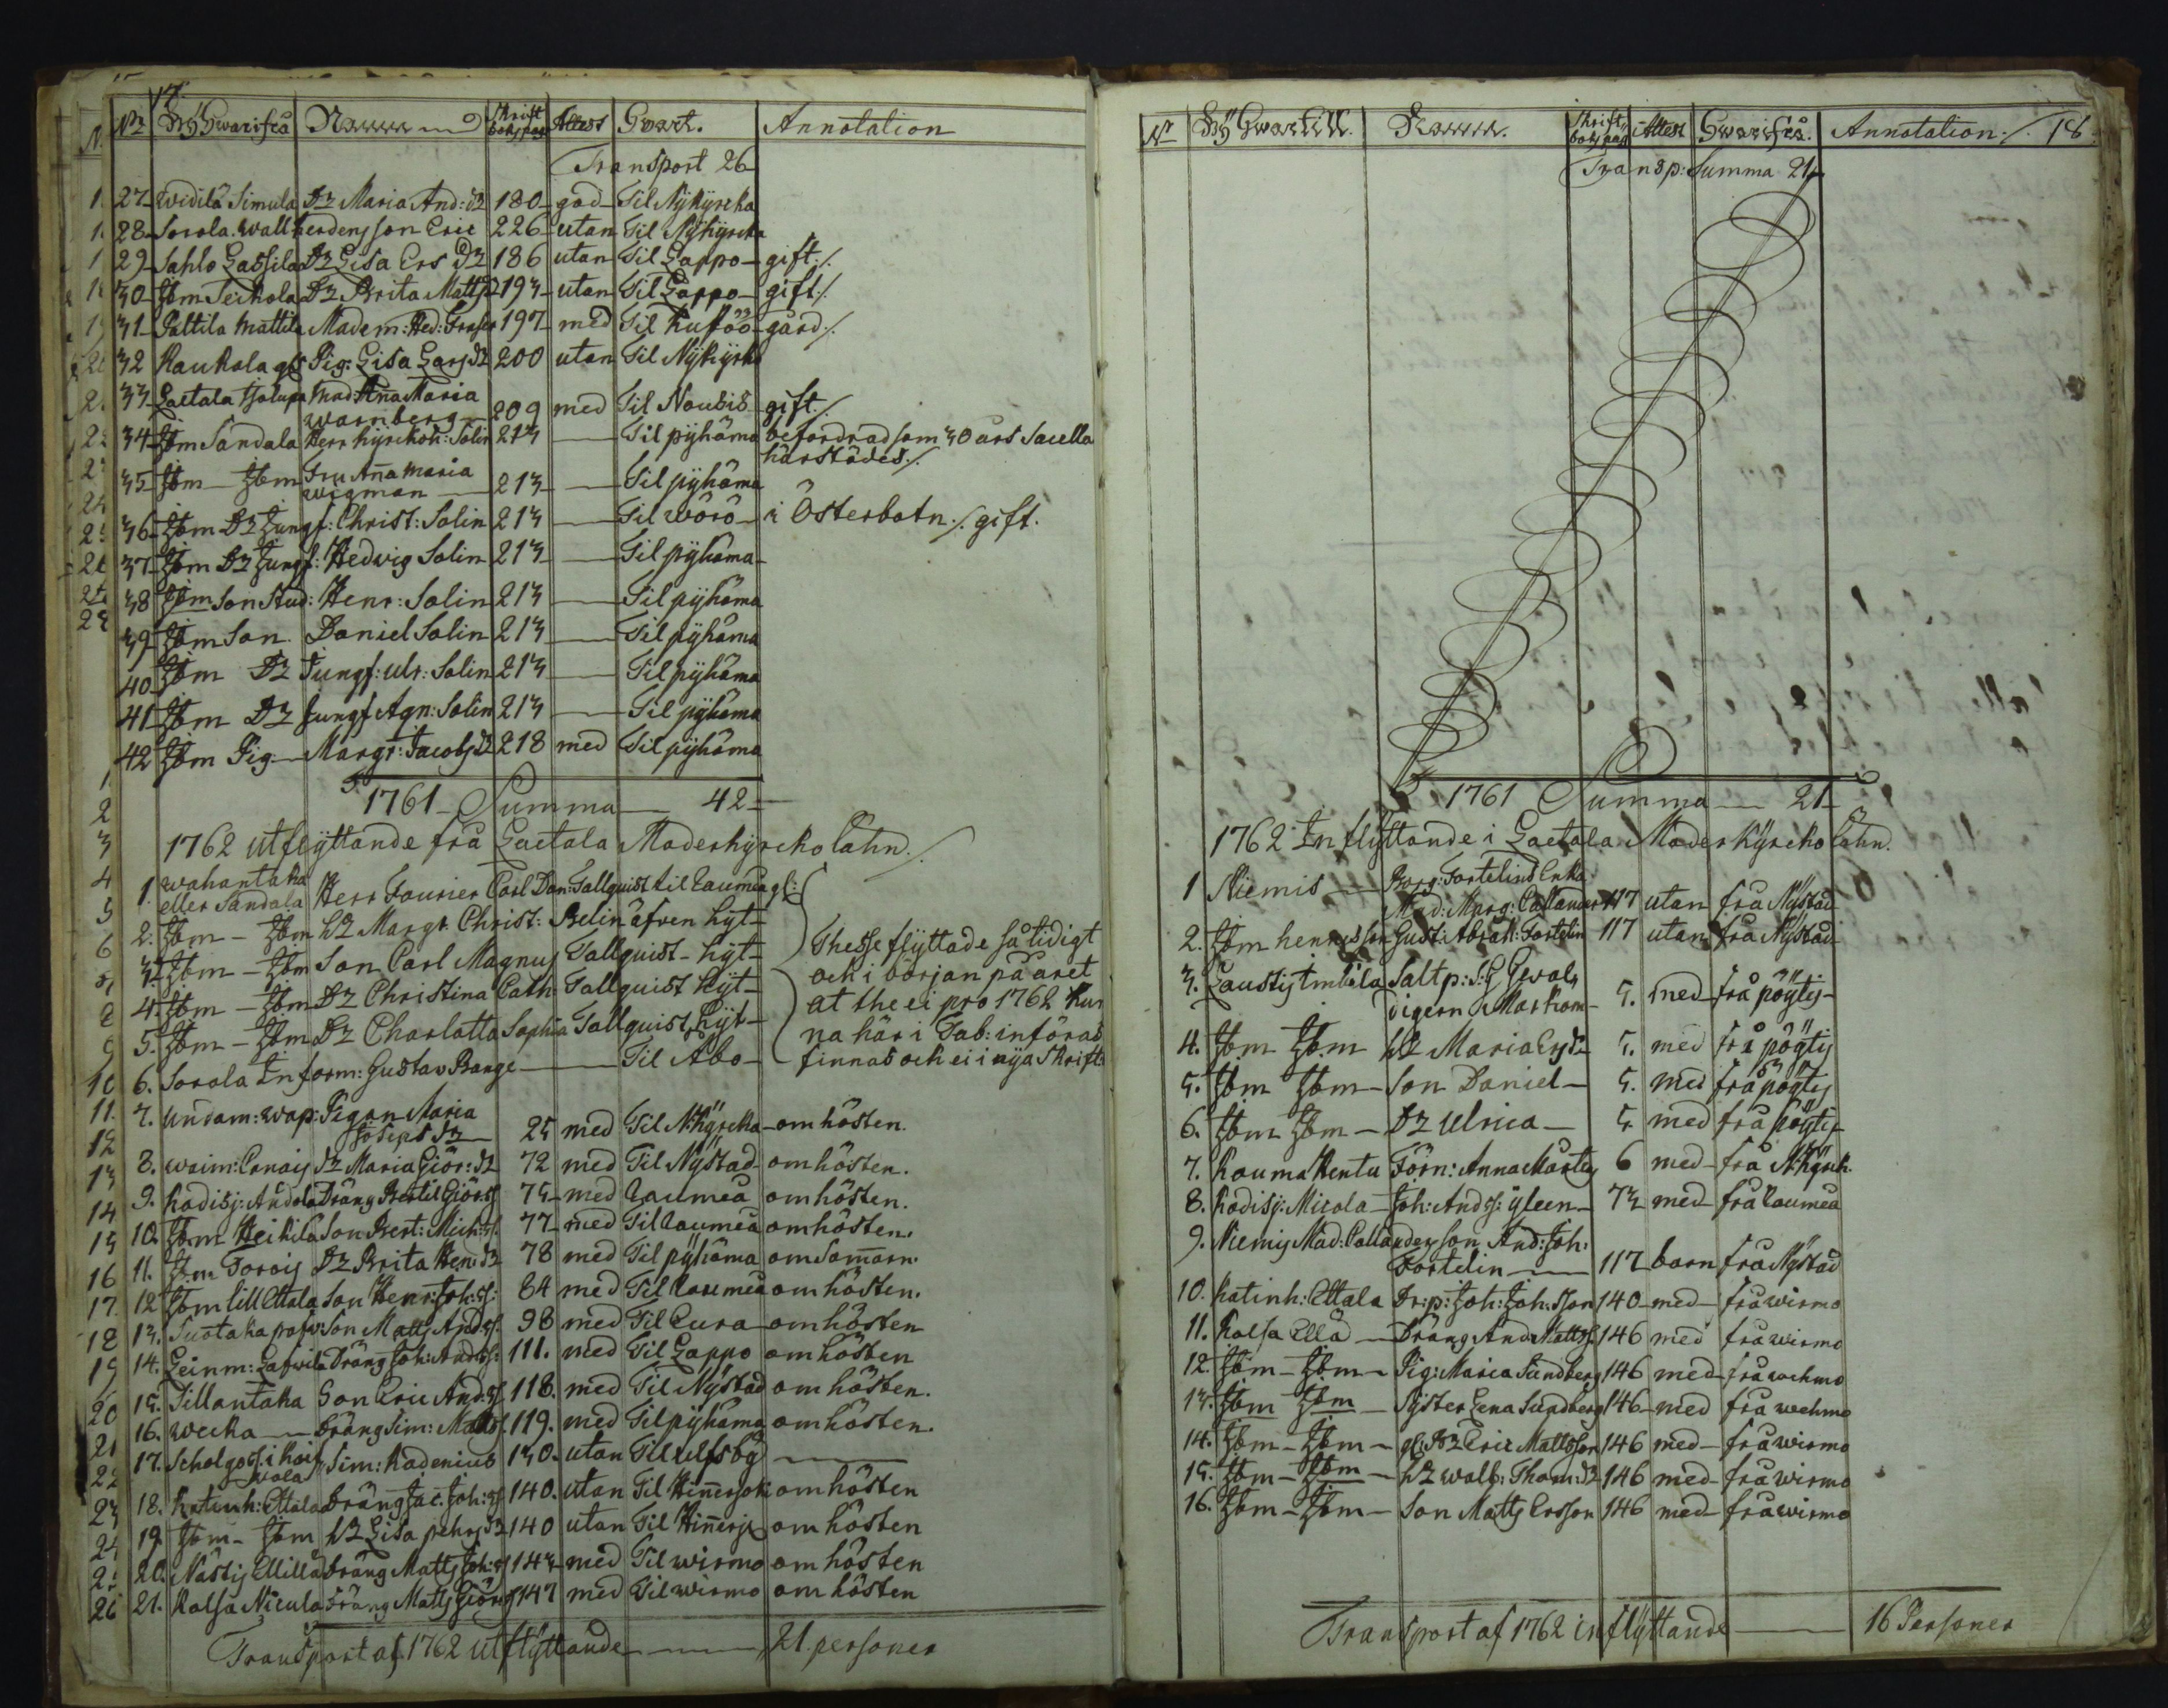 17.
N. Nr By Hwarifrå Namn Skrift bokz pag Attest Hvart. Annotation
Transport 26
27 Widilä Simula Dr Maria And: dr 180 god Til Nykyrcka
28 Sorola. Wallherdens son Eric 226 utan Til Nykyrcka
29 Sahlo Lassila Dr Lisa Ers dr 186 utan Til Lappo gift./.
30 Ibm Seikola Dr Brita Matts dr 193 utan Til Lappo gift./.
31 Paltila Mattila Madem: Hed: Fraser 197 med Til Kustöö gård./.
32 Kaukola Pig: Lisa Lars dr 200 utan Til Nykyrk
33 Laetala Mad: Anna Maria
Warnberg 209 med Til Nousis gift./.
34 Ibm Sandala Herr kyrckoh: Salin 213 — Til pyhäma befordrad som 30 års Sacella
härstädes./.
35 Ibm — Ibm Fru Anna Maria
Wigman 213 — Til pyhäma
36 Ibm Dr Jungf: Christ: Salin 213 — Til Wörö i Österbotn./. gift.
37 Ibm Dr Jungf: Hedwig Salin 213 — Til pyhäma
38 Ibm Son Stud: Henr: Salin 213 — Til pyhäma
39 Ibm Son Daniel Salin 213 — Til pyhäma
40 Ibm Dr Jungf: Ulr: Salin 213 — Til pyhäma
41 Ibm Dr Jungf Agn: Salin 213 — Til pyhäma
42 Ibm Pig Margr: Jacobs dr 218 med Til pyhäma
1761 Summa — 42
1762 utflyttande frå Laetala Moderkyrcko lähn./.
1. Wahantaka
eller Sandala Herr Fourier Carl Dan: Tallquist til Eaumea
2. Ibm — Ibm h: Margr. Christ: Belin äfven hyt
3. Ibm — Ibm Son Carl Magnus Tallquist hyt
4. Ibm — Ibm Dr Christina Cath Tallquist hyt
5. Ibm — Ibm Dr Charlatta Sophia Tallquist hyt
6. Sorola Inform: Gustav Bange — Til Åbo
Thesse flyttade så tidigt
ock i början på året
at the ei pro 1762 kun
na här i Tab: införas
finnas och ei i nya Skrift
7. Undam: Wap: Pigan Maria
Josephs dr 25 med Til N:kyrcka om hösten.
8. Waim: Cronais dr Maria Giör: dr 72 med Til Nystad om hösten.
9. Kodisj: Andola Dräng Bertil Giörs: 75 med Raumea om hösten.
10. Ibm Heikilä Son Bert: Mich: s: 77 med Til Raumea om hösten.
11. Ibm Torois Dr Brita Hen: dr 78 med Til pyhäma om Somarn.
12 Ibm lill Ettala Son Henr: Joh: s: 84 med Til Raumea om hösten.
13. Suotaka Son Matts And: s: 98 med Til Eura om hösten
14. Leinm: Lafwila Dräng Joh: And: s: 111. med Til Lappo om hösten
15. Tillantaka Son Eric And: s: 118. med Til Nystad om hösten.
16. Wecka — Dräng Sim: Matts: 119. med Til pyhäma om hösten.
17. Scholgoss. i Koif
wola Sim: Kadenius 130. utan Til Ulfsby —
18. Katinh: Ettala Dräng Jac: Joh: s: 140. utan Til Hinnerjok om hösten
19. Ibm — Ibm h: Lisa pehrs dr 140 utan Til Hinnerje om hösten
20. Nästis Ellilla Dräng Matts Joh: s 143 med Til Wirmo om hösten
21. Kalsa Nicula Dräng Matts Giörs: 147 med Til Wirmo om hösten
Transport af 1762 utflyttande — 21. personer
Nr By Hwartill. Namn. Skrift bokz pag Attest Hwarifrå. Annotation./. 18.
Transp: Summa 21
1761 Summa — 21
1762 Inflyttande i Laetala Moder Kyrcko lähn.
1 Niemis — Borg: Fortelins Enka
Mad: Marg: Callander 117 utan frå Nystad
2. Ibm hennes son Gust: Abrah: Fortelin 117 utan frå Nystad
3. Laustis Imbila Saltp: S: G Geval
digern Markom 5. med frå pöytis
4. Ibm Ibm h: Maria Ers dr 5. med frå pöytis
5. Ibm Ibm Son Daniel 5. med frå pöytis
6. Ibm Ibm Dr Ulrica 5. med frå pöytis
7. Kouma Hentu Förn: Anna Mårts 6 med frå N:kyrck.
8. Kodisj: Micola Joh: Ands: Yleen 73 med frå Raumea
9. Niemis Mad: Callanders son And: Joh:
Fortelin — 117 barn frå Nystad
10. Katinh: Ettala Dr: p: Joh: Joh: sson 140 med frå Wirmo
11. Kalsa Ellä — Dräng And: Matts: 146 med frå Wirmo
12. Ibm — Ibm Pig: Maria Sundberg 146 med frå Wehmo
13. Ibm Ibm Syster Lena Sundberg 146 med frå Wehmo
14. Ibm — Ibm Eric Mattsson 146 med frå Wirmo
15. Ibm — Ibm h: Walb: Thom: dr 146 med frå Wirmo
16. Ibm — Ibm Son Matts Ersson 146 med frå Wirmo
Transport af 1762 inflyttande — 16 Personer